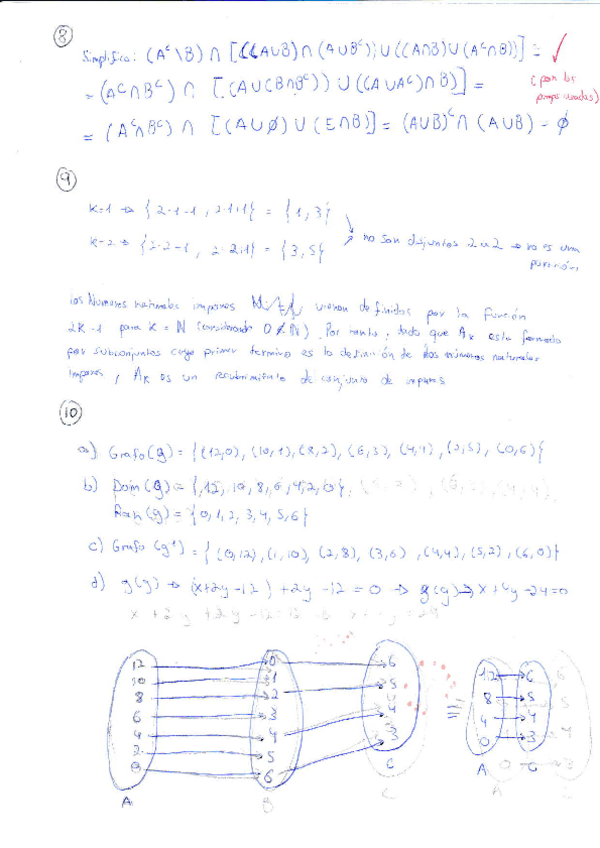 8
Simplifica: (Aᶜ\B) ∩ [((A∪B)∩(A∪Bᶜ))∪((A∩B)∪(Aᶜ∩B))] = ✓
= (Aᶜ∩Bᶜ) ∩ [(A∪(B∩Bᶜ)) ∪ ((A∪Aᶜ)∩B)] =
(por los
= (Aᶜ∩Bᶜ) ∩ [(A∪∅) ∪ (E∩B)] = (A∪B)ᶜ∩ (A∪B) = ∅
9
K=1 → {2·1-1, 2·1+1} = {1,3}
K=2 → {2·2-1, 2·2+1} = {3,5}
no son disjuntos 2 a 2 → no es una
partición
Los Números naturales impares vienen definidos por la función
2K-1 para K = N (considerando 0 ∉ N). Por tanto, dado que Aₖ esta formado
por subconjuntos cuyo primer termino es la definición de los números naturales
impares, Aₖ es un recubrimiento de conjunto de impares
10
a) Grafo(g) = {(12,0), (10,1), (8,2), (6,3), (4,4), (2,5), (0,6)}
b) Dom(g) = {12, 10, 8, 6, 4, 2, 0}
Ran(g) = {0, 1, 2, 3, 4, 5, 6}
c) Grafo(g¹) = {(0,12), (1,10), (2,8), (3,6), (4,4), (5,2), (6,0)}
d) g(g) → (x+2y-12) + 2y-12 = 0 → g(g) → x+4y-24=0
12 0 6
10 1 5
8 2 4
6 3 3
4 4
2 5
0 6
A B C
≡
12 6
8 5
4 4
0 3
A C